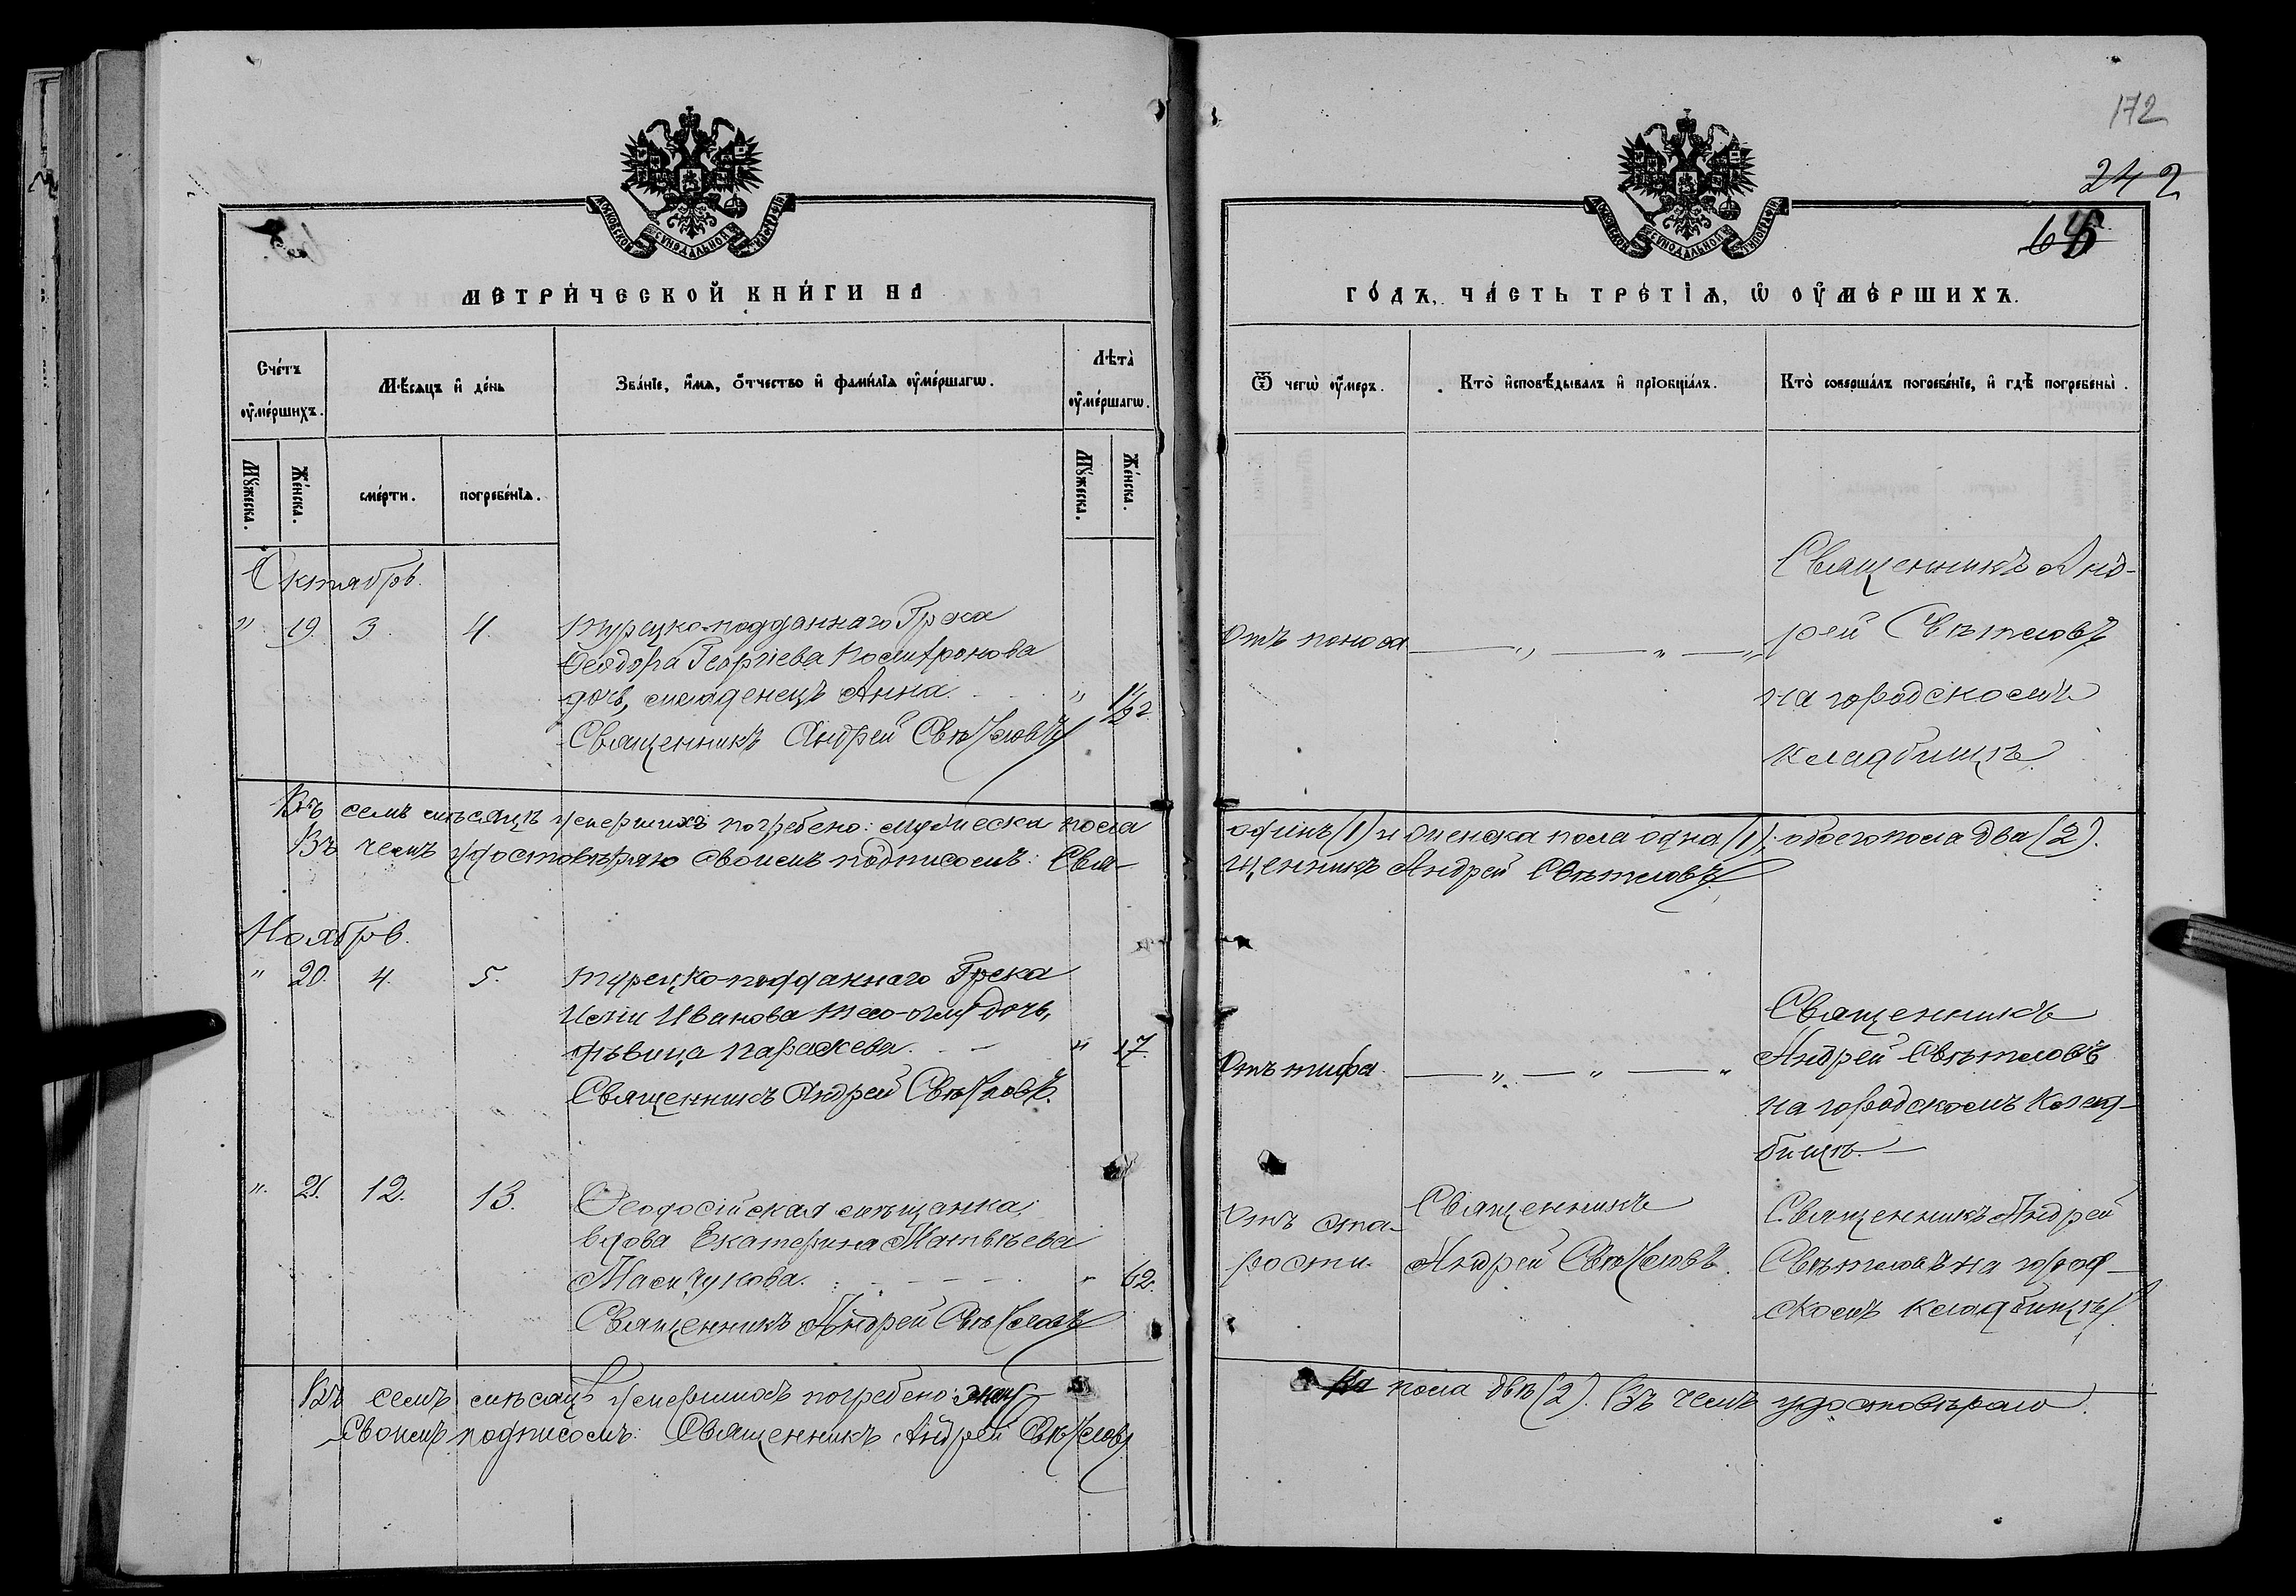 172
242
МОСКОВСКОЙ СѴНОДАЛЬНОЙ ТИПОГРАФІИ
МОСКОВСКОЙ СѴНОДАЛЬНОЙ ТИПОГРАФІИ
МЕТРИ́ЧЕСКОЙ КНИ́ГИ НА
ГО́ДЪ, ЧА́СТЬ ТРЕ́ТІѦ, Ѡ҆ ОУ҆МЕ́РШИХЪ.
Сче́тъ оу҆ме́ршихъ.
Мѣ́сяцъ и҆ де́нь
Зва́ніе, и҆́мя, ѻ҆́тчество и҆ фами́лїя оу҆ме́ршагѡ.
Лѣта̀ оу҆ме́ршагѡ.
Ѿ чегѡ̀ оу҆́меръ.
Кто̀ и҆сповѣ́дывалъ и҆ прїобща́лъ.
Кто̀ соверша́лъ погребе́нїе, и҆ гдѣ̀ погребены̀.
Мꙋ́жеска.
Же́нска.
сме́рти.
погребе́нїѧ.
Мꙋ́жеска.
Же́нска.
Октябрь.
" 19. 3. 4. Турецко-подданнаго Грека
Ѳеодора Георгіева
дочь, младенецъ Анна. "
Священникъ Андрей Свѣтловъ
Отъ поноса — " — " — "
Священникъ Анд-
рей Свѣтловъ
на городскомъ
кладбищѣ
Въ семъ мѣсяцѣ умершихъ погребено: мужеска пола
одинъ (1) и женска пола одна (1); обоего пола два (2).
Въ чемъ удостовѣряю своимъ подписомъ: Свя-
щенникъ Андрей Свѣтловъ
Ноябрь.
" 20. 4. 5. Турецко-подданнаго Грека
Иліи Иванова дочь,
дѣвица Параскева. — " 17.
Священникъ Андрей Свѣтловъ.
Отъ тифа — " — " — "
Священникъ
Андрей Свѣтловъ
на городскомъ клад-
бищѣ. —
" 21. 12. 13. Ѳеодосійская мѣщанка,
вдова Екатерина Матвѣева
" 62.
Священникъ Андрей Свѣтловъ
Отъ ста-
рости.
Священникъ
Андрей Свѣтловъ.
Священникъ Андрей
Свѣтловъ на город-
скомъ кладбищѣ
Въ семъ мѣсяцѣ умершихъ погребено:
пола двѣ (2). Въ чемъ удостовѣряю
Своимъ подписомъ: Священникъ Андрей Свѣтловъ